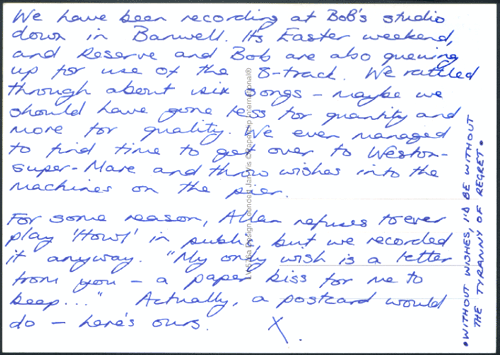 We have been recording at Bob's studio
down in Banwell. Its Easter weekend,
and Reserve and Bob are also queuing
up for use of the 8-track. We rattled
through about six songs – maybe we
should have gone less for quantity and
more for quality. We even managed
to find time to get over to Weston-
super-Mare and throw wishes into the
machines on the pier.
For some reason, Allan refuses to ever
play 'Howl' in public, but we recorded
it anyway. "My only wish is a letter
from you – a paper kiss for me to
keep..." Actually, a postcard would
do – here's ours. X.
• WITHOUT WISHES, I'D BE WITHOUT
THE TYRANNY OF REGRET •